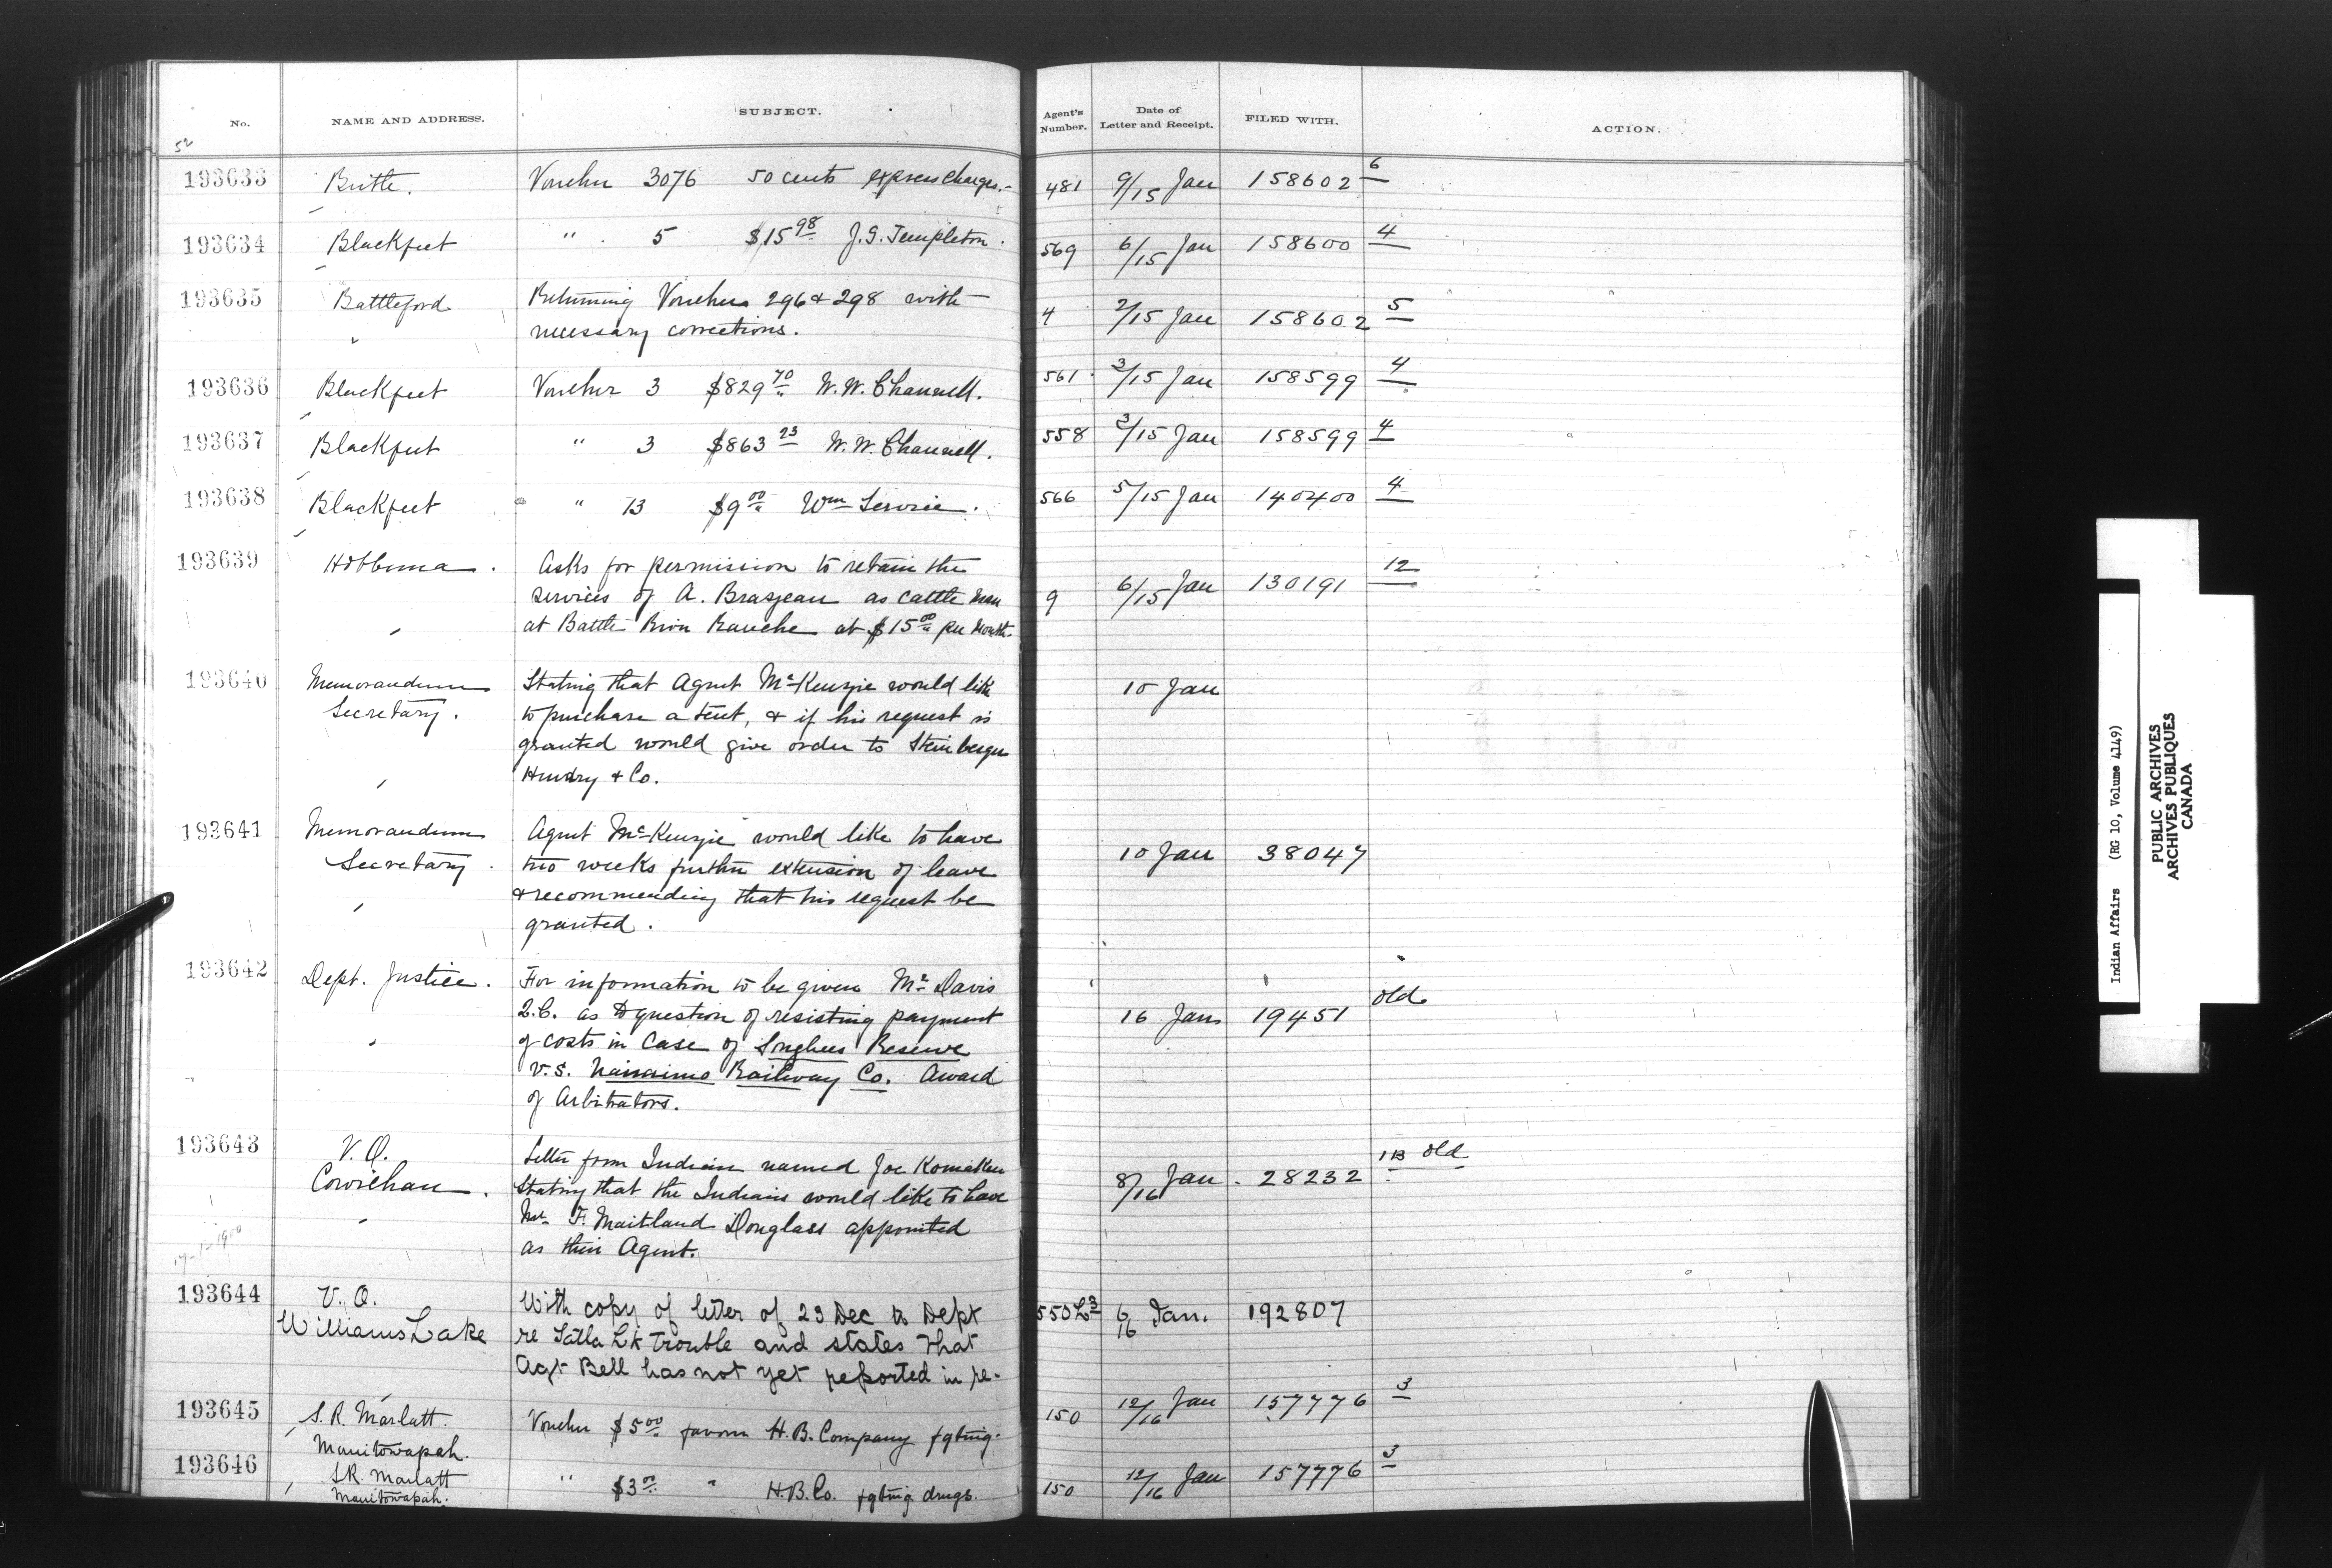 No. NAME AND ADDRESS. SUBJECT. Agent's Number. Date of Letter and Receipt. FILED WITH. ACTION.
193633 Birtle. Voucher 3076 50 cents express charges.- 481 9/15 Jan 158602 6
193634 Blackfeet " 5 $15 98 J.G. Templeton. 569 6/15 Jan 158600 4
193635 Battleford Returning Vouchers 296 & 298 with 4 2/15 Jan 158602 5
necessary corrections.
193636 Blackfeet Voucher 3 $829 70 W.W. Channell. 561 3/15 Jan 158599 4
193637 Blackfeet " 3 $863 23 W.W. Channell. 558 3/15 Jan 158599 4
193638 Blackfeet " 13 $9 00 Wm Service. 566 5/15 Jan 140400 4
193639 Hobbema. Asks for permission to retain the 9 6/15 Jan 130191 12
services of A. Brazeau as cattle man
at Battle River Ranche at $15 00 per month
193640 Memorandum Stating that Agent McKenzie would like 15 Jan
Secretary. to purchase a tent, & if his request is
granted would give order to Steinberger
Hendry & Co.
193641 Memorandum Agent McKenzie would like to have 10 Jan 38047
Secretary. two weeks further extension of leave
& recommending that his request be
granted.
193642 Dept. Justice. For information to be given Mr Davis 16 Jan 19451 old
Q.C. as to question of resisting payment
of costs in Case of Songhees Reserve
v.s. Nanaimo Railway Co. Award
of Arbitrators.
193643 V.O. Letter from Indian named Joe Komaken 8/16 Jan 28232 1B old
Cowichan. Stating that the Indians would like to have
Mr. F. Maitland Douglass appointed
as their Agent.
17-1-1900
193644 V.O. With copy of letter of 23 Dec to Dept 550 L3 6/16 Jan. 192807
Williams Lake re Tatla Lk Trouble and states that
Agt Bell has not yet reported in re-
193645 S.R. Marlatt. Voucher $5 00 favour H.B. Company fgting. 150 12/16 Jan 157776 3
Manitowapah.
193646 S.R. Marlatt " $3 00 " H.B.Co. fgting drugs. 150 12/16 Jan 157776 3
Manitowapah.
Indian Affairs (RG 10, Volume 4149)
PUBLIC ARCHIVES
ARCHIVES PUBLIQUES
CANADA